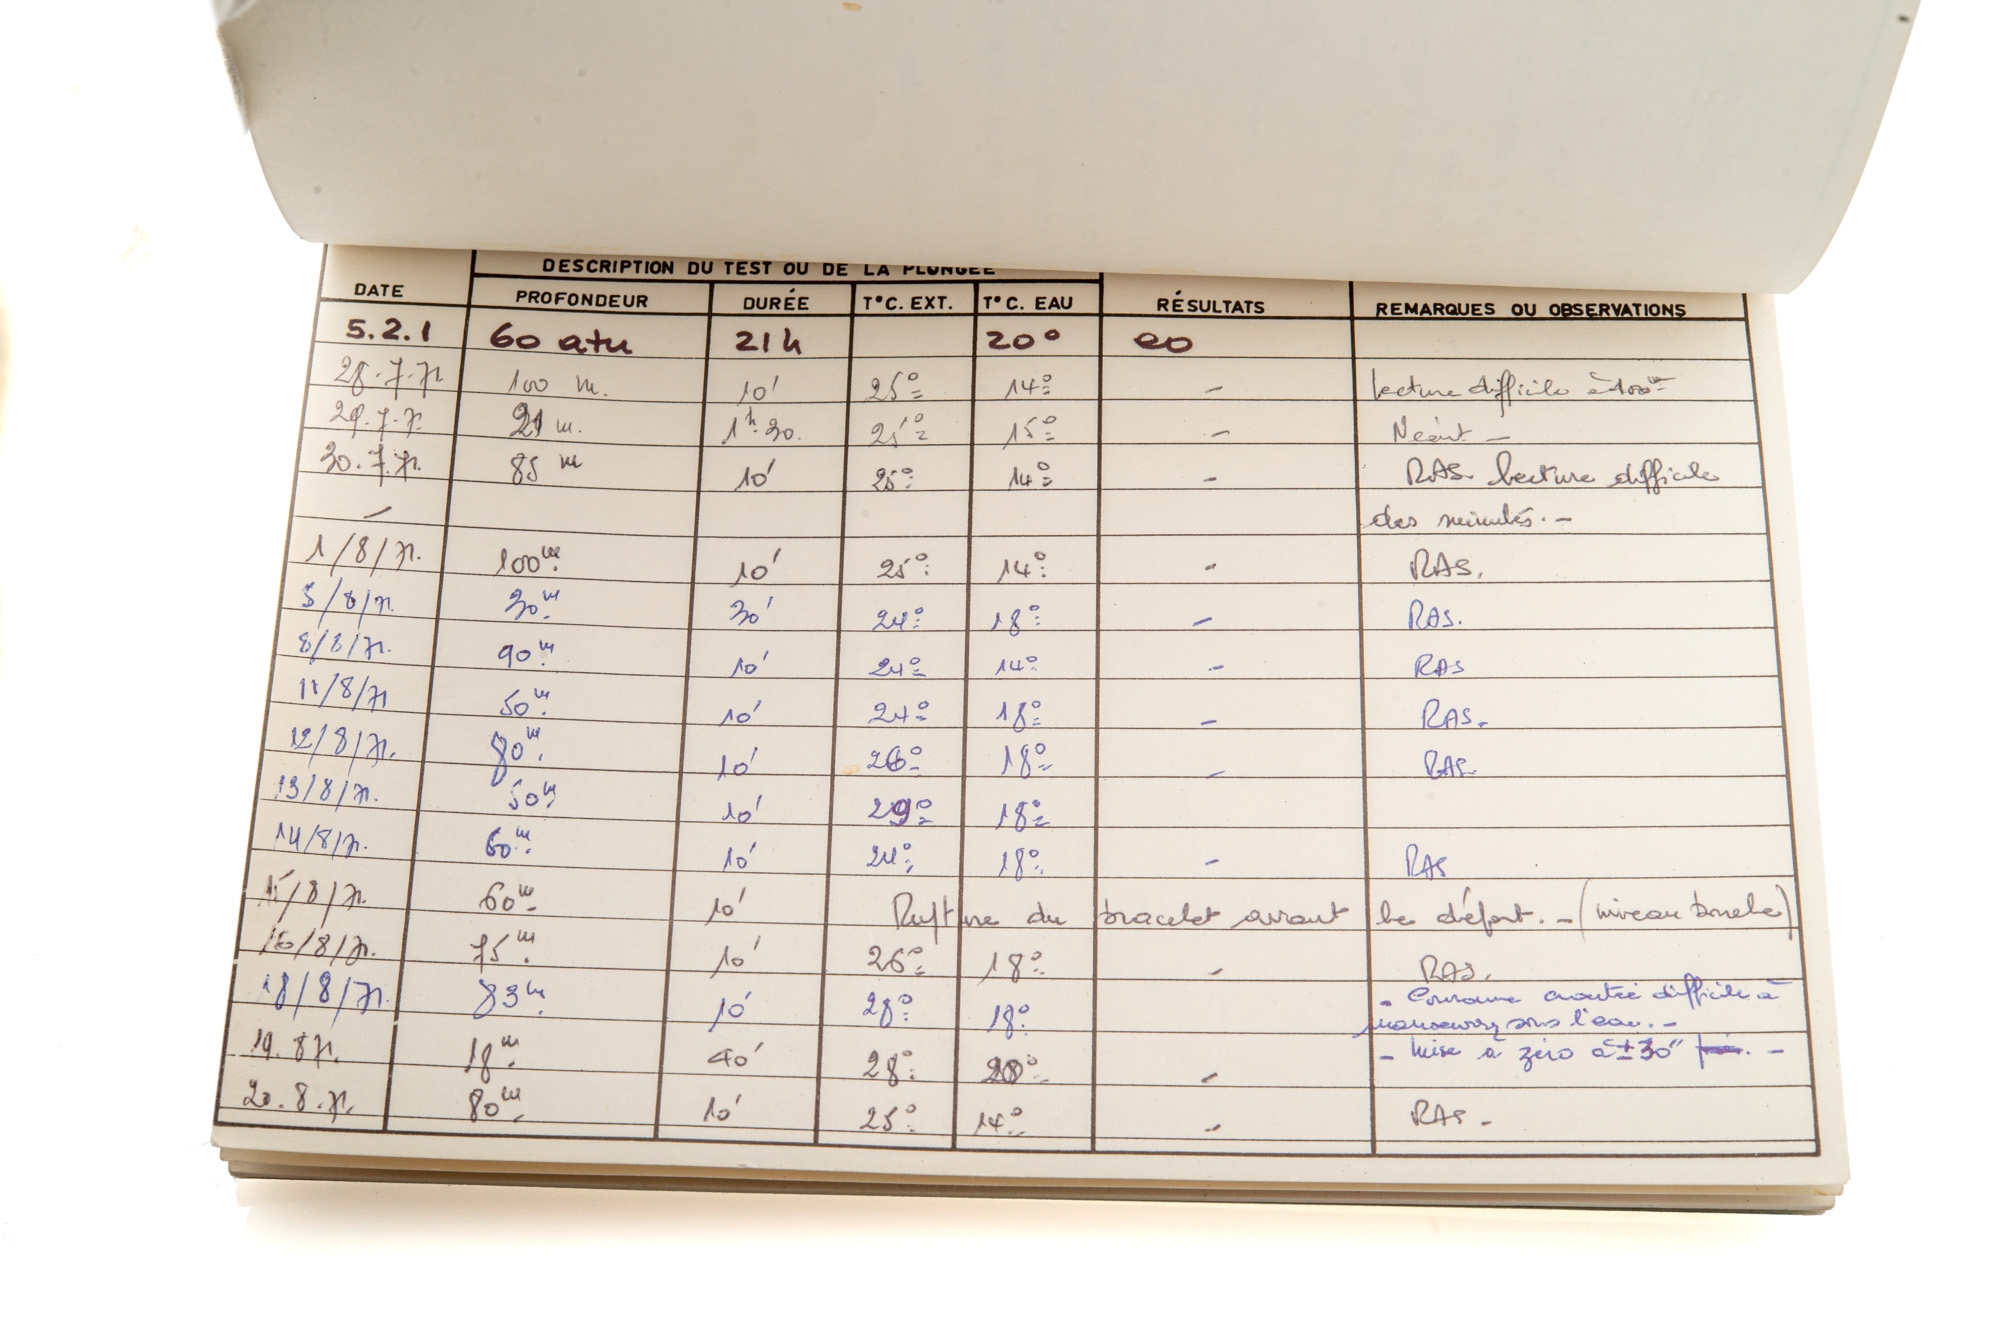 DESCRIPTION DU TEST OU DE LA PLONGÉE
DATE PROFONDEUR DURÉE T°C. EXT. T°C. EAU RÉSULTATS REMARQUES OU OBSERVATIONS
5.2.1 60 atu 21 h 20° eo
28.7.71 100 m. 10' 25° 14° - lecture difficile à 100m
29.7.71 21 m. 1h30. 25° 15° - Néant -
30.7.71. 85 m 10' 25° 14° - RAS. lecture difficile
- des minutes. -
1/8/71. 100m. 10' 25° 14° - RAS.
5/8/71. 30m 30' 24° 18° - RAS.
8/8/71. 90m. 10' 24° 14° - RAS
11/8/71 50m. 10' 24° 18° - RAS.
12/8/71. 80m. 10' 26° 18° - RAS.
13/8/71. 50m 10' 29° 18°
14/8/71. 60m. 10' 24° 18° - RAS
15/8/71. 60m 10' Rupture du bracelet avant le départ. - (niveau boucle)
16/8/71. 75m. 10' 26° 18° - RAS.
18/8/71. 83m. 10' 28° 18° - Couronne crantée difficile à
manoeuvrer sous l'eau. -
19.8.71. 18m. 40' 28° 20° - - Mise à zéro à ±30" -
20.8.71. 80m. 10' 25° 14° - RAS -